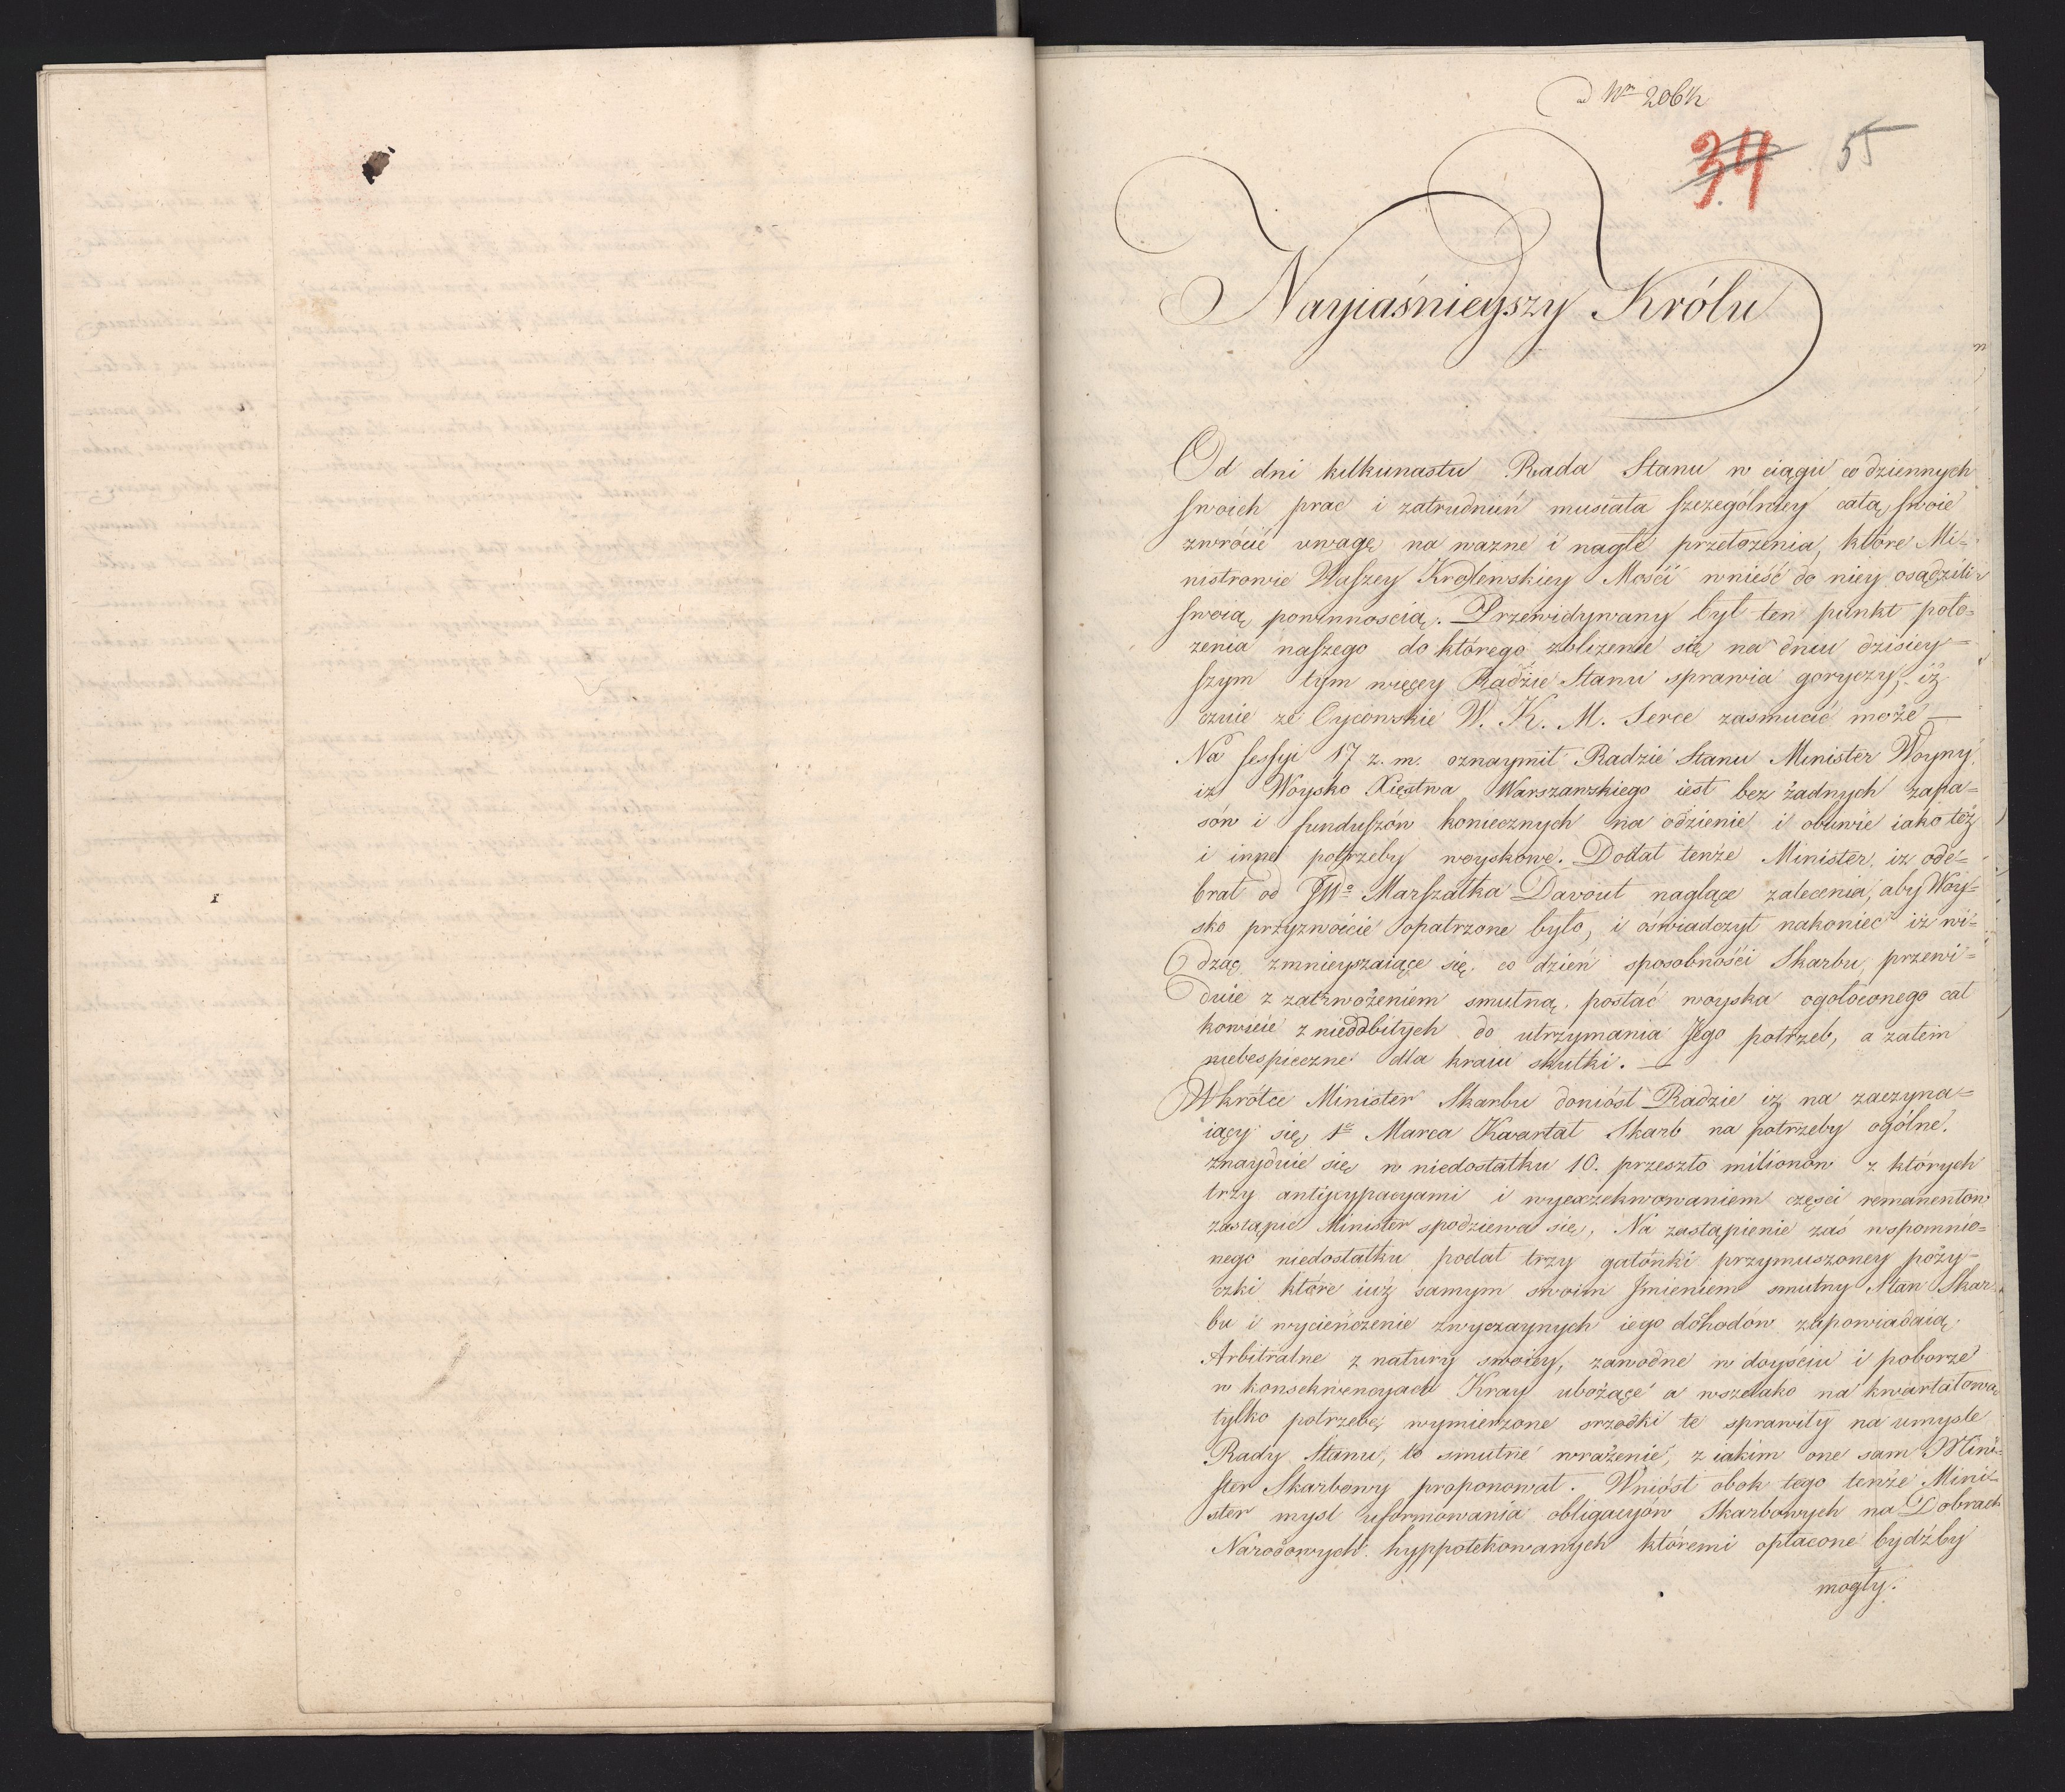 ad Nm 206k
34 55
Nayiaśnieyszy Królu
Od dni kilkunastu Rada Stanu w ciągu codziennych
swoich prac i zatrudnień musiała szczególniey całą swoie
zwrócić uwagę na ważne i nagłe przełożenia, które Mi=
nistrowie Waszey Królewskiey Mości wnieść do niey osądzili
swoią powinnością. Przewidywany był ten punkt poło=
żenia naszego do którego zbliżenie się na dniu dzisiey=
szym tym więcey Radzie Stanu sprawia goryczy, iż
czuie że Oycowskie W. K. M. Serce zasmucić może —
Na sessyi 17 z. m. oznaymił Radzie Stanu Minister Woyny,
iż Woysko Xięstwa Warszawskiego iest bez żadnych zapa=
sów i funduszów koniecznych na odzienie i obuwie iako też
i inne potrzeby woyskowe. Dodał tenże Minister, iż ode=
brał od JWo Marszałka Davout naglące zalecenia, aby Woy=
sko przyzwoicie opatrzone było, i oświadczył nakoniec iż wi=
dząc zmnieyszaiące się co dzień sposobności Skarbu, przewi=
duie z zatrwożeniem smutną postać woyska ogołoconego cał
kowicie z nieodbitych do utrzymania Jego potrzeb, a zatem
niebespieczne dla kraiu skutki. —
Wkrótce Minister Skarbu doniósł Radzie iż na zaczyna=
iący się 1o Marca Kwartał Skarb na potrzeby ogólne
znayduie się w niedostatku 10. przeszło milionów z których
trzy anticypacyami i wyexzekwowaniem części remanentow
zastąpić Minister spodziewa się, Na zastąpienie zaś wspomnio=
nego niedostatku podał trzy gatónki przymuszoney poży=
czki które iuż samym swoim Jmieniem smutny Stan Skar=
bu i wycieńczenie zwyczaynych iego dóhodów zapowiadaią.
Arbitralne z natury swoiey, zawodne w doyściu i poborze
w konsekwencyach Kray ubożące a wszelako na kwartałową
tylko potrzebę wymierzone srzodki te sprawiły na umyśle
Rady Stanu, to smutne wrażenie, z iakim one sam Mini=
ster Skarbowy proponował. Wniósł obok tego tenże Mini=
ster mysl uformowania obligacyów Skarbowych na Dobrach
Narodowych hyppotekowanych któremi opłacone bydźby
mogły.